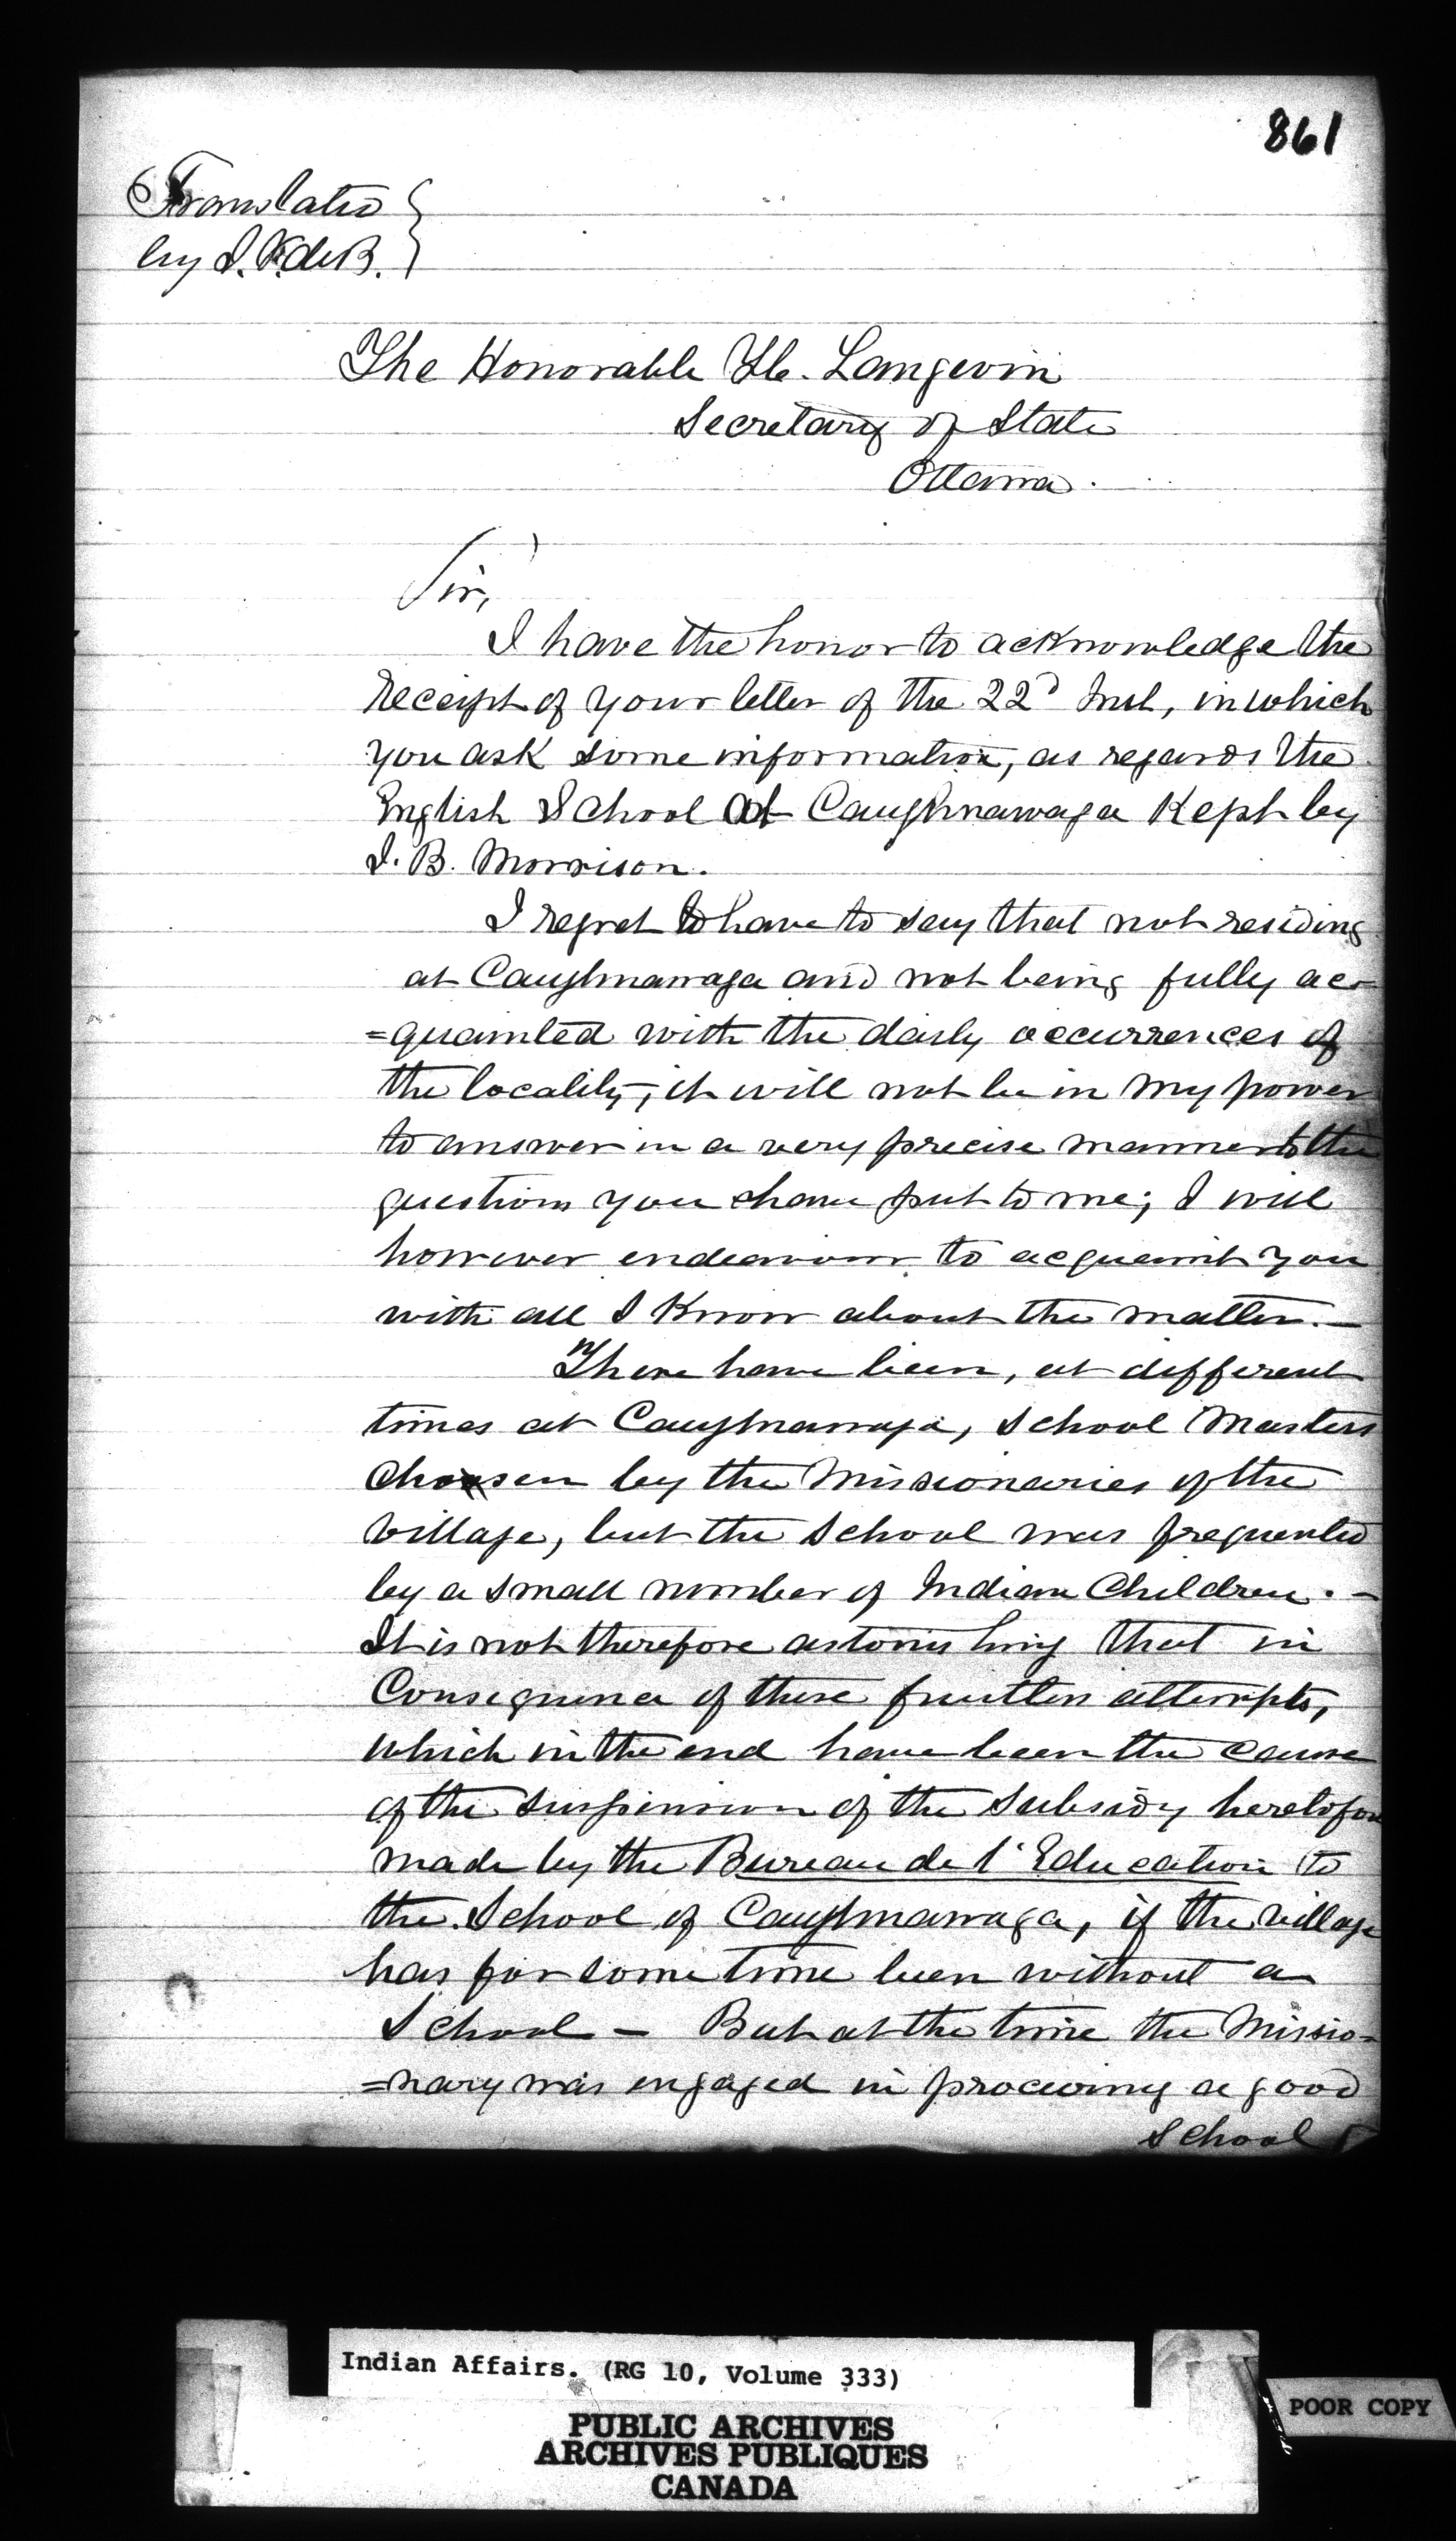 861
Translated
by J. V. de B.
The Honorable H. Langevin
Secretary of State
Ottawa.
Sir,
I have the honor to acknowledge the
receipt of your letter of the 22d Inst, in which
you ask some information, as regards the
English School at Caughnawaga Kept by
J. B. Morrison.
I regret to have to say that not residing
at Caughnawaga and not being fully ac-
=quainted with the daily occurrences of
the locality, it will not be in my power
to answer in a very precise manner to the
questions you have put to me; I will
however endeavour to acquaint you
with all I Know about the matter.—
There have been, at different
times at Caughnawaga, School Masters
chosen by the Missionaries of the
village, but the School was frequented
by a small number of Indian Children.—
It is not therefore astonishing that in
Consequence of these fruitless attempts,
which in the end have been the cause
of the suspension of the Subsidy heretofore
made by the Bureau de l'Education to
the School of Caughnawaga, if the village
has for some time been without a
School — But at the time the Missio=
=nary was engaged in procuring a good
School
Indian Affairs. (RG 10, Volume 333)
PUBLIC ARCHIVES
ARCHIVES PUBLIQUES
CANADA
POOR COPY